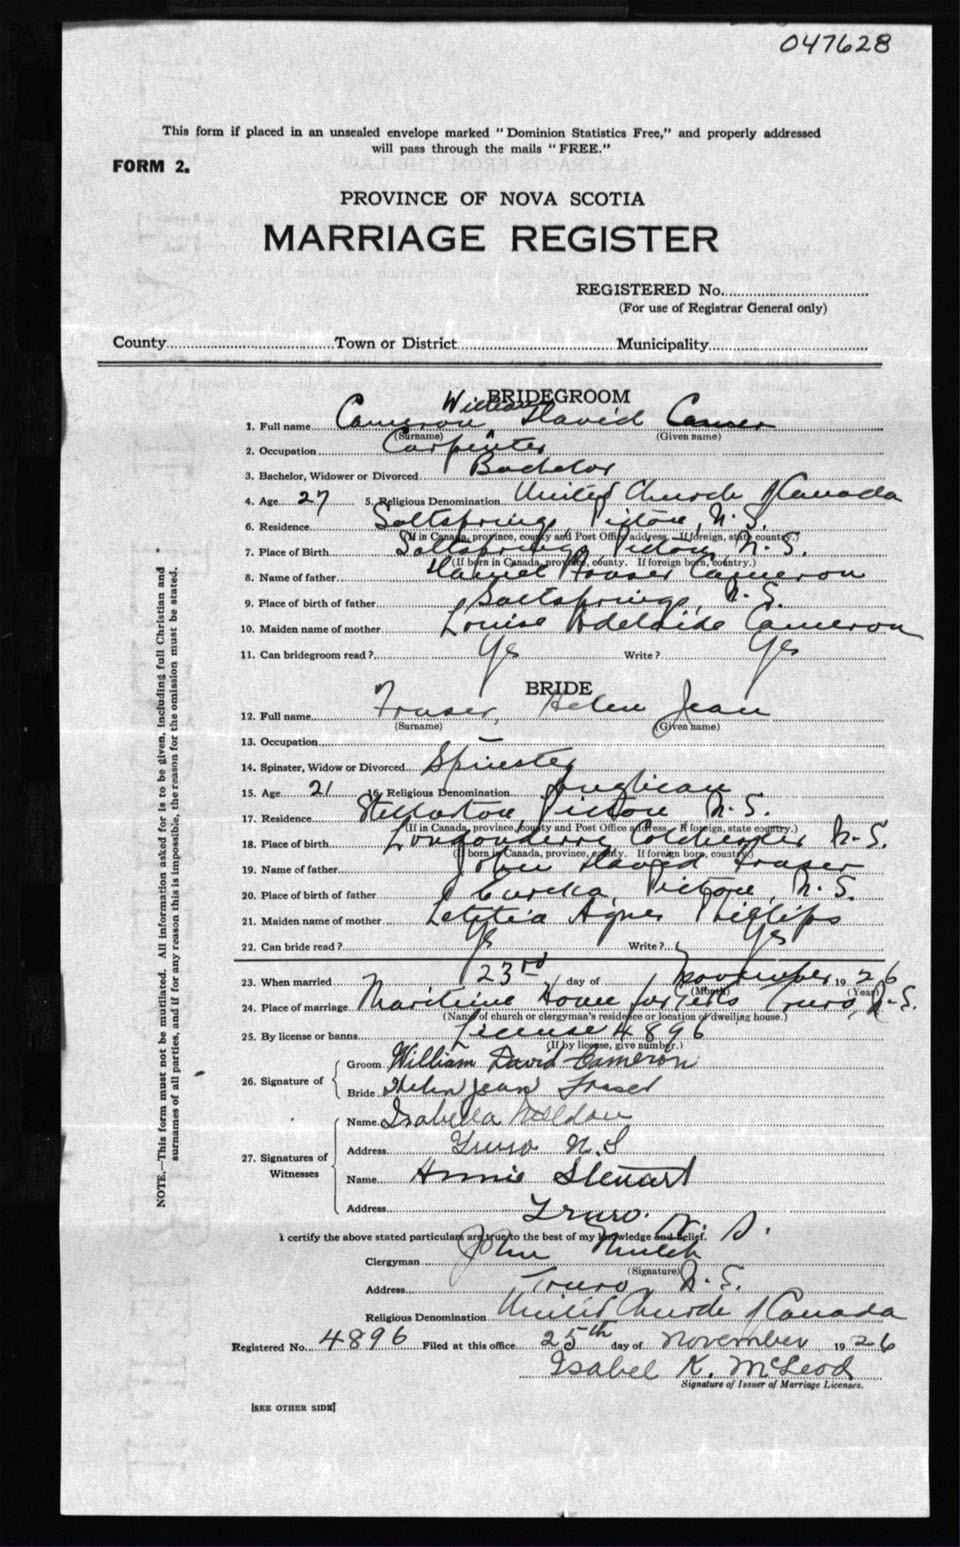 047628
This form if placed in an unsealed envelope marked "Dominion Statistics Free," and properly addressed
will pass through the mails "FREE."
FORM 2.
PROVINCE OF NOVA SCOTIA
MARRIAGE REGISTER
REGISTERED No.
(For use of Registrar General only)
County Town or District Municipality
BRIDEGROOM
William
1. Full name Cameron, David
(Surname) (Given name)
2. Occupation Carpenter
3. Bachelor, Widower or Divorced Bachelor
4. Age 27 5. Religious Denomination United Church of Canada
6. Residence Saltsprings, Pictou, N.S.
(If in Canada, province, county and Post Office address. If foreign, state country.)
7. Place of Birth Saltsprings, Pictou, N.S.
(If born in Canada, province, county. If foreign born, country.)
8. Name of father Daniel Fraser Cameron
9. Place of birth of father Saltsprings, N.S.
10. Maiden name of mother Louise Adelaide Cameron
11. Can bridegroom read? Yes Write? Yes
BRIDE
12. Full name Fraser, Helen Jean
(Surname) (Given name)
13. Occupation —
14. Spinster, Widow or Divorced Spinster
15. Age 21 16. Religious Denomination Anglican
17. Residence Stellarton, Pictou N.S.
(If in Canada, province, county and Post Office address. If foreign, state country.)
18. Place of birth Londonderry Colchester N.S.
(If born in Canada, province, county. If foreign born, country.)
19. Name of father John David Fraser
20. Place of birth of father Eureka, Pictou, N.S.
21. Maiden name of mother Letitia Agnes Phillips
22. Can bride read? Yes Write? Yes
23. When married 23rd day of November 1926
(Month) (Year)
24. Place of marriage Maritime Home for Girls Truro, N.S.
(Name of church or clergyman's residence or location of dwelling house.)
25. By license or banns License 4896
(If by license, give number.)
26. Signature of
Groom William David Cameron
Bride Helen Jean Fraser
27. Signatures of Witnesses
Name Isabella
Address Truro N.S
Name Annie Stewart
Address Truro. N. S.
I certify the above stated particulars are true to the best of my knowledge and belief.
Clergyman John
(Signature)
Address Truro N.S.
Religious Denomination United Church of Canada
Registered No. 4896 Filed at this office 25th day of November 1926
Isabel K. McLeod
Signature of Issuer of Marriage Licenses.
[SEE OTHER SIDE]
NOTE.—This form must not be mutilated. All information asked for is to be given, including full Christian and
surnames of all parties, and if for any reason this is impossible, the reason for the omission must be stated.